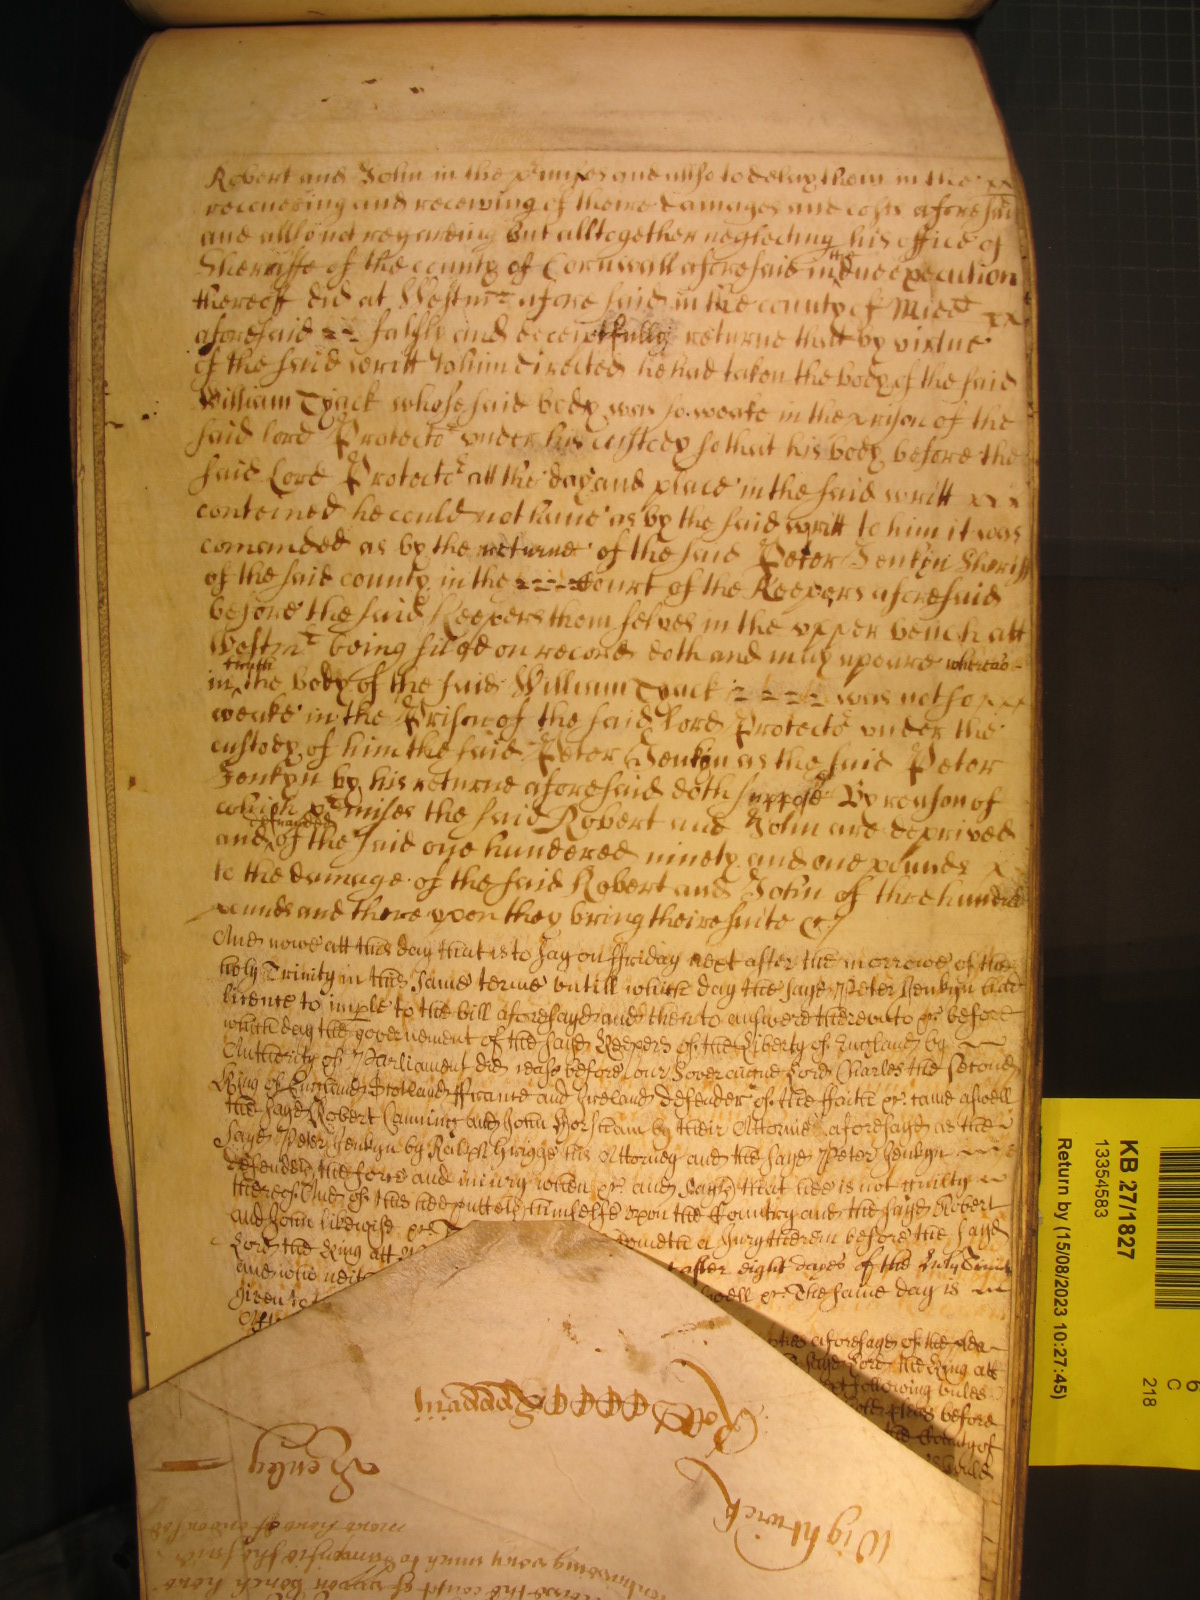 Robert and John in the p'misses and allso to delay them in the
recovering and receiving of theire damages and costs aforesaid
and allso not regarding but alltogether neglecting his office of
Sherriffe of the county of Cornwall aforesaid in the due execution
thereoff did at Westmr aforesaid in the county of Midd
aforesaid falsly and deceiptfully returne that by virtue
of the said writt to him directed he had taken the body of the said
William Tyack whose said body was so weake in the prison of the
said lord Protector under his custody so that his body before the
said Lord Protector att the day and place in the said writt
conteined he could not have as by the said writt to him it was
comanded as by the returne of the said Peter Jenkyn Sheriff
of the said county in the Court of the Keepers aforesaid
before the said Keepers them selves in the upper bench att
Westmr being filed on record doth and may apeare whereas
in truth the body of the said William Tyack was not so
weake in the Prison of the said Lord Protector under the
custody of him the said Peter Jenkyn as the said Peter
Jenkyn by his returne aforesaid doth suppose By reason of
which p'misses the said Robert and John are deprived
and defrauded of the said one hundered ninety and one pounds
to the damage of the said Robert and John of three hundred
pounds and there upon they bring theire suite &c
And nowe att this day that is to say on ffriday next after the morrowe of the
holy Trinity in this same terme untill which day the sayd Peter Jenkyn had
licence to imple to the bill aforesayd and then to answere thereunto &c before
which day the government of the sayd Keepers of the Liberty of England by
Authority of Parliament did cease before our Soveraigne Lord Charles the second
King of England Scotland ffrance and Ireland defender of the ffaith &c came aswell
the sayd Robert Canning and John Horsham by their Attorney aforesayd as the
sayd Peter Jenkyn by Ralph Griggs his Attorney and the sayd Peter Jenkyn
defendeth the force and iniury when &c and sayth that hee is not guilty
thereof And of this hee putteth himselfe upon the Country and the sayd Robert
and John likewise &c cometh a Jury therein before the sayd
Lord the King att after eight dayes of the holy Trinity
and who neith well &c The same day is
given to
aforesayd of the plea
sayd Lord the King att
following
before
the County of
Rott CCCCLxxxxiii
Henley
Wightwick